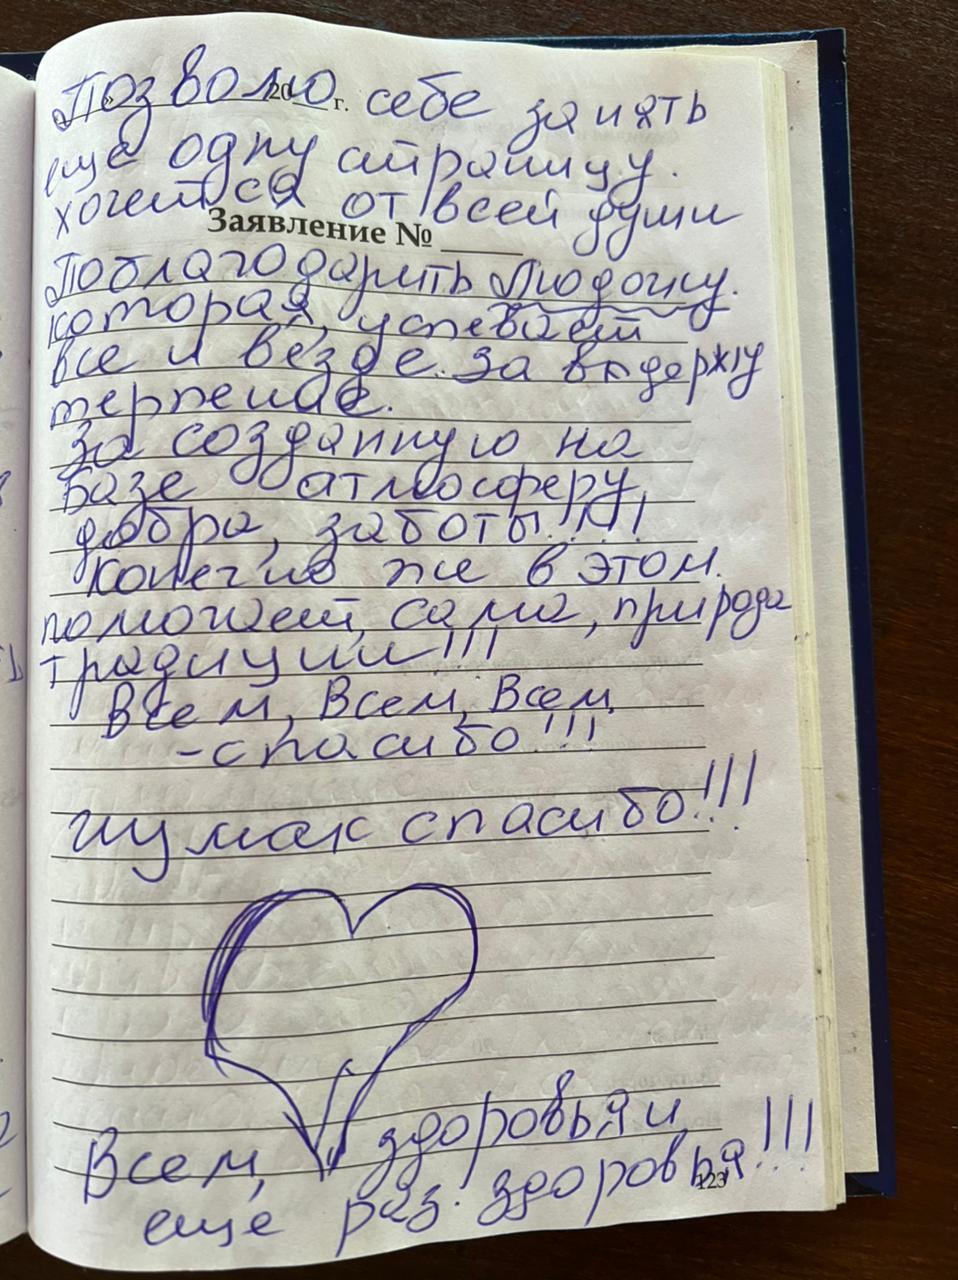 Позволю себе занять
«   20   г.
еще одну страницу.
хочется от всей души
Заявление № ______
поблагодарить Людочку.
которая, успевает
все и везде. за выдержу
терпение.
За созданную на
базе атмосферу
добра, заботы!!!!
Конечно же в этом
помогает, сама, природа
традиции!!!
Всем, Всем, Всем,
- спасибо!!!
Шумак спасибо!!!
Всем, здоровья и,
еще раз. здоровья!!!
123